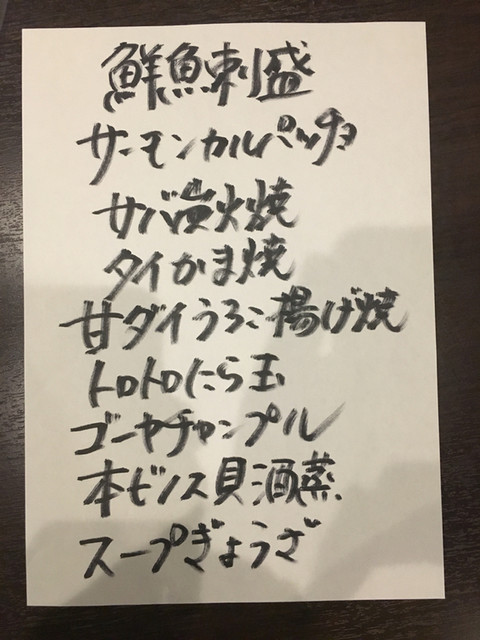 鮮魚刺盛
サーモンカルパッチョ
サバ炭火焼
タイかま焼
甘ダイうろこ揚げ焼
トロトロにら玉
ゴーヤチャンプル
本ビノス貝酒蒸
スープぎょうざ